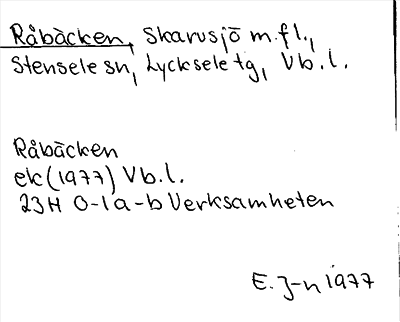 Råbäcken, Skarvsjö m.fl.,
Stensele sn, Lycksele tg, Vb.l.
Råbäcken
ek (1977) Vb.l.
23H 0-1a-b Verksamheten
E. J-n 1977